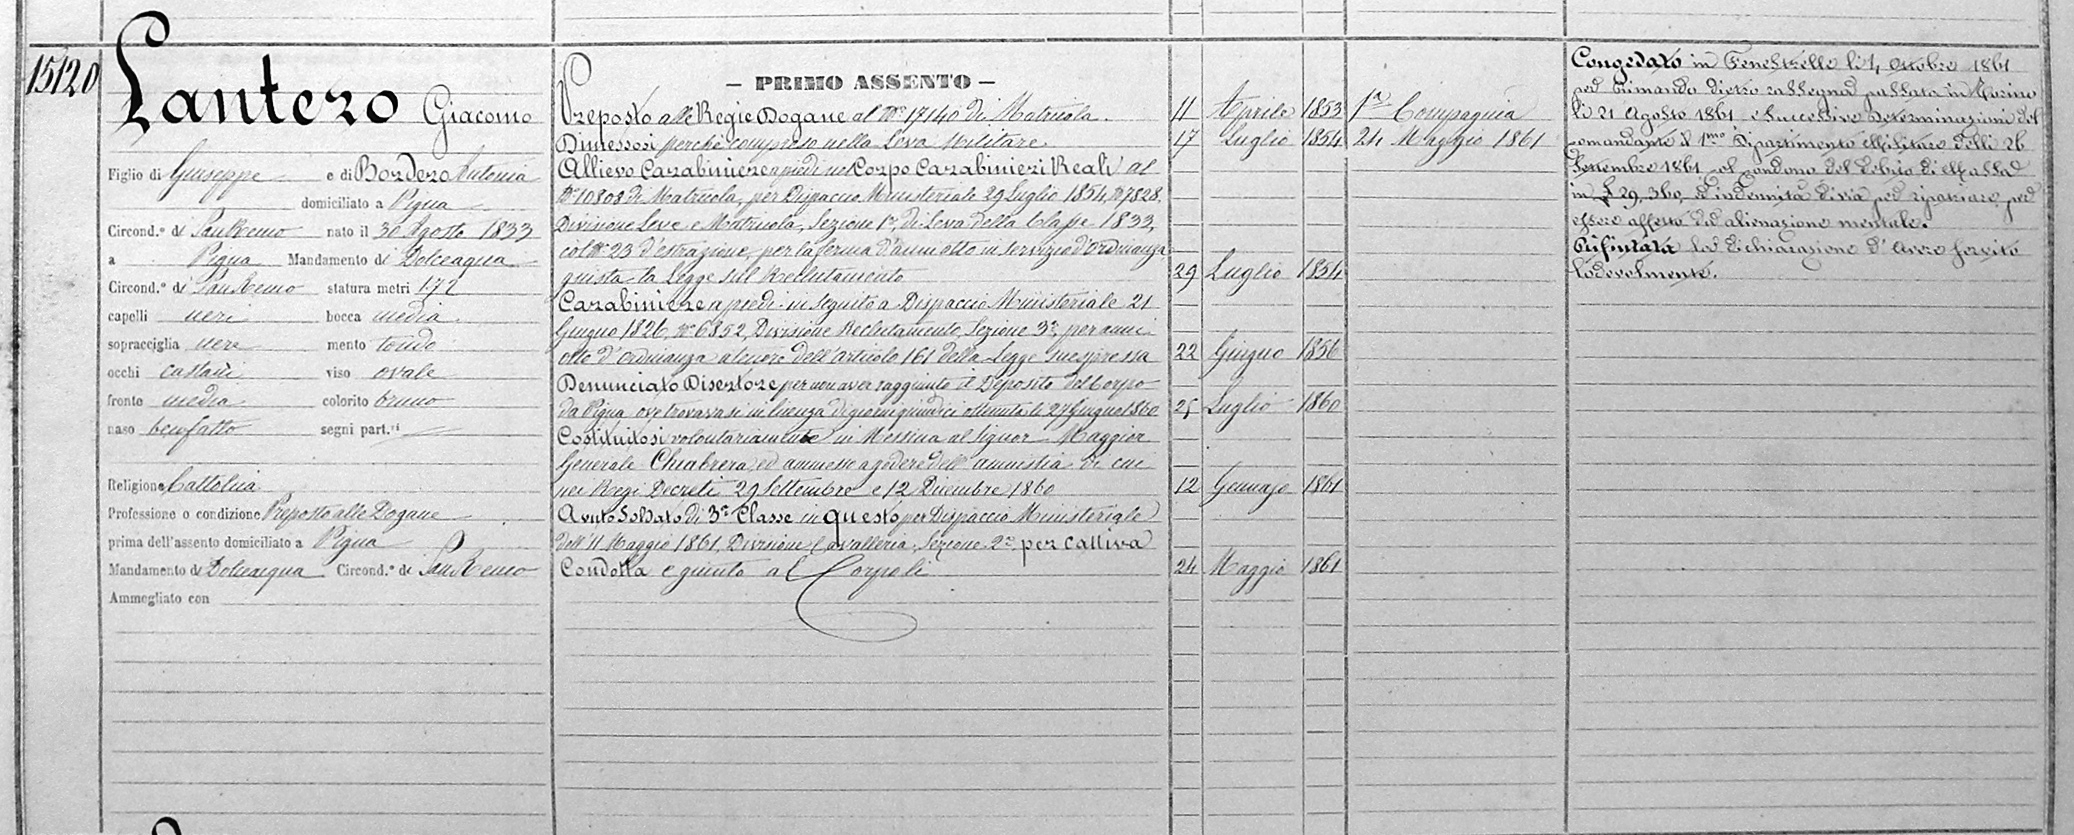 15120
Lantero Giacomo
Figlio di Giuseppe e di Bordero Antonia
domiciliato a Pigna
Circond.º di San Remo nato il 30 Agosto 1833
a Pigna Mandamento di Dolceaqua
Circond.º di San Remo statura metri 172
capelli neri bocca media
sopracciglia nere mento tondo
occhi castani viso ovale
fronte media colorito bruno
naso benfatto segni part.ri
Religione Cattolica
Professione o condizione Preposto alle Dogane
prima dell'assento domiciliato a Pigna
Mandamento di Dolceaqua Circond.º di San Remo
Ammogliato con
— PRIMO ASSENTO —
Preposto alle Regie Dogane al Nº 17140 di Matricola. 11 Aprile 1853
Dimessosi perchè compreso nella Leva Militare. 17 Luglio 1854
Allievo Carabiniere a piedi nel Corpo Carabinieri Reali al
Nº 10808 di Matricola, per Dispaccio Ministeriale 29 Luglio 1854, Nº 7828.
Divisione Leve e Matricola, Sezione 1ª, di Leva della Classe 1833,
col Nº 23 d'estrazione, per la ferma d'anni otto in servizio d'ordinanza
giusta la Legge sul Reclutamento 29 Luglio 1854
Carabiniere a piedi in seguito a Dispaccio Ministeriale 21
Giugno 1826, Nº 6852, Divisione Reclutamento, Sezione 3ª, per anni
otto d'ordinanza a tenore dell'articolo 161 della Legge 22 Giugno 1856
Denunciato Disertore per non aver raggiunto il Deposito del Corpo
da Pigna ove trovavasi in licenza di giorni quindici ottenuta li 27 Giugno 1860 25 Luglio 1860
Costituitosi volontariamente in Messina al Signor Maggior
Generale Chiabrera, ed ammesso a godere dell'amnistia di cui
nei Regi Decreti 29 Settembre e 12 Dicembre 1860 12 Gennajo 1861
Avuto Soldato di 3ª Classe in questo per Dispaccio Ministeriale
dell'11 Maggio 1861, Divisione Cavalleria, Sezione 2ª, per cattiva
Condotta e giunto al Corpo li 24 Maggio 1861
1ª Compagnia
24 Maggio 1861
Congedato in Fenestrelle li 4 Ottobre 1861
per rimando dietro rassegna passata in Torino
li 21 Agosto 1861 e successive determinazioni del
comandante il 1mo Dipartimento Militare delli 26
Settembre 1861 col condono del debito di Massa
in £ 29, 360, ed indennità di via per ripatriare, per
essere affetto da alienazione mentale.
Rifiutata la dichiarazione d'aver servito
lodevolmente.